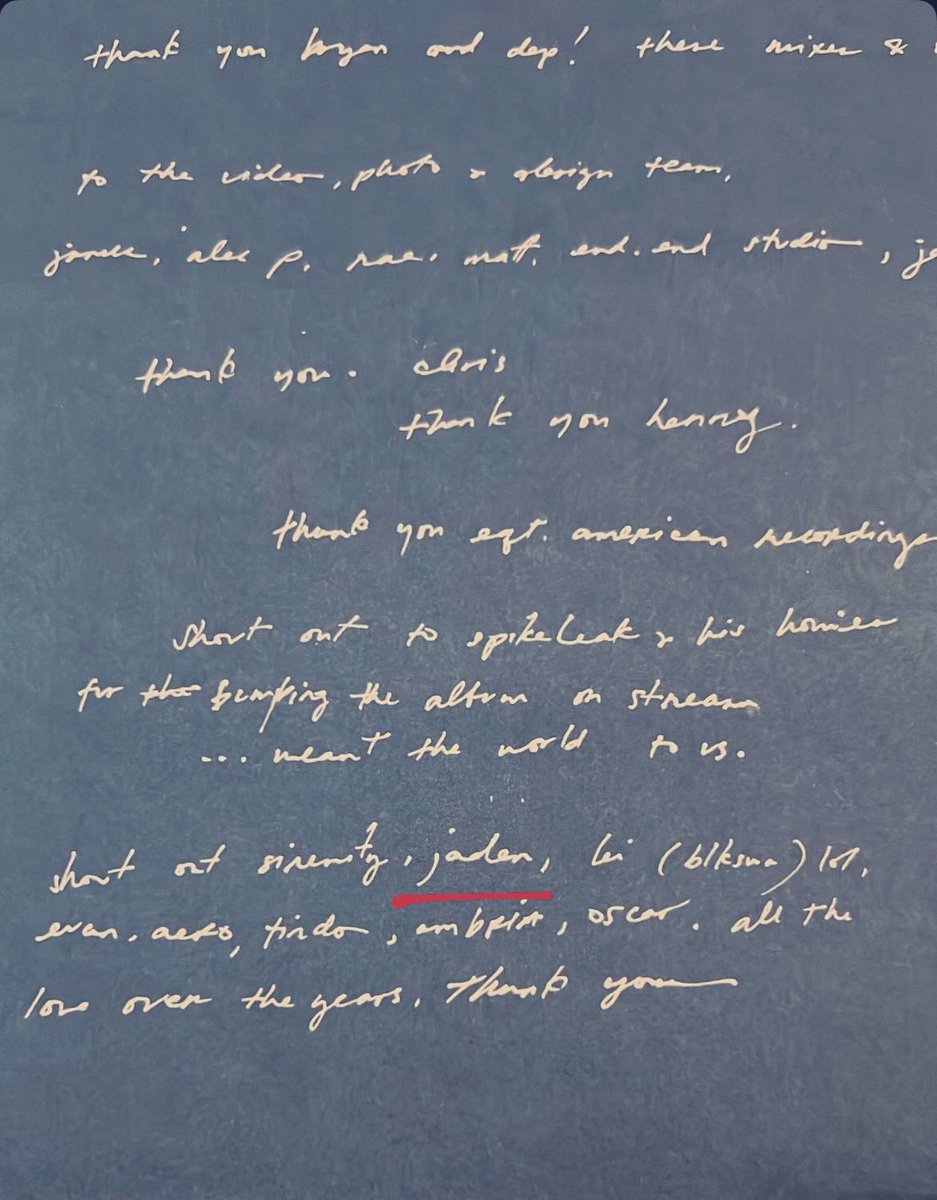 thank you bryan and dap! these mixes &
to the video, photo & design team,
janell, alec p. rae. matt. end.end studio,
thank you. chris
thank you henny.
thank you eqt. american recordings
shout out to spikeleak & his homies
for the bumping the album on stream
... meant the world to us.
shout out sirenity, jaden, lei (blksun) lol,
evan. aero, tindo, oscar. all the
love over the years. thank you